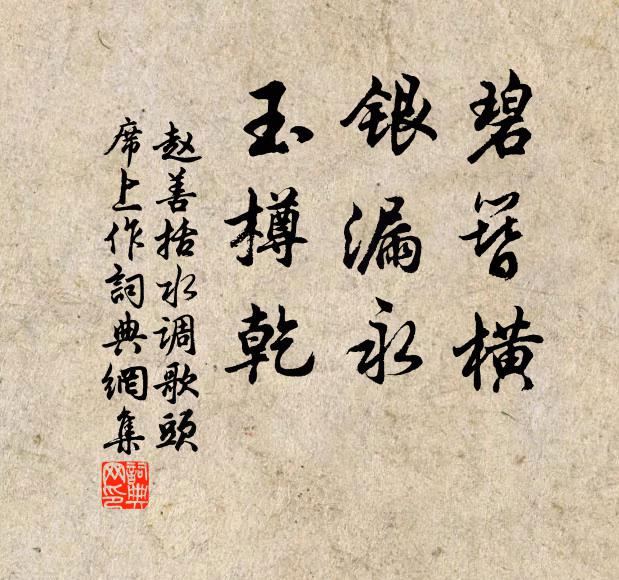 碧簪橫
銀漏永
玉樽乾
赵善括水调歌頭
席上作詞典網集
詞典网印